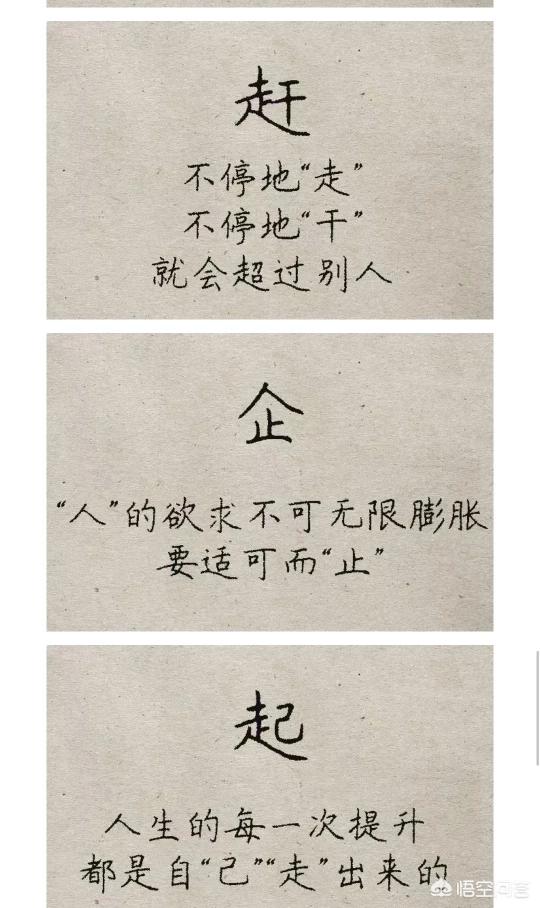 赶
不停地“走”
不停地“干”
就会超过别人
企
“人”的欲求不可无限膨胀
要适可而“止”
起
人生的每一次提升
都是自“己”“走”出来的
悟空问答